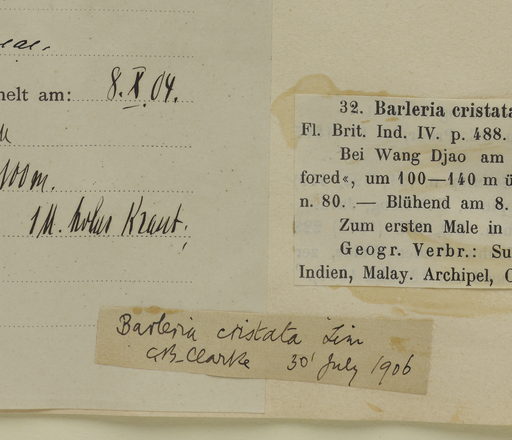 eae.
nelt am: 8. X. 04.
100 m.
1 M. hohes Kraut.
32. Barleria cristata
Fl. Brit. Ind. IV. p. 488.
Bei Wang Djao am
fored«, um 100—140 m ü
n. 80. — Blühend am 8.
Zum ersten Male in
Geogr. Verbr.: Su
Indien, Malay. Archipel, C
Barleria cristata Lin
C.B. Clarke 30' July 1906